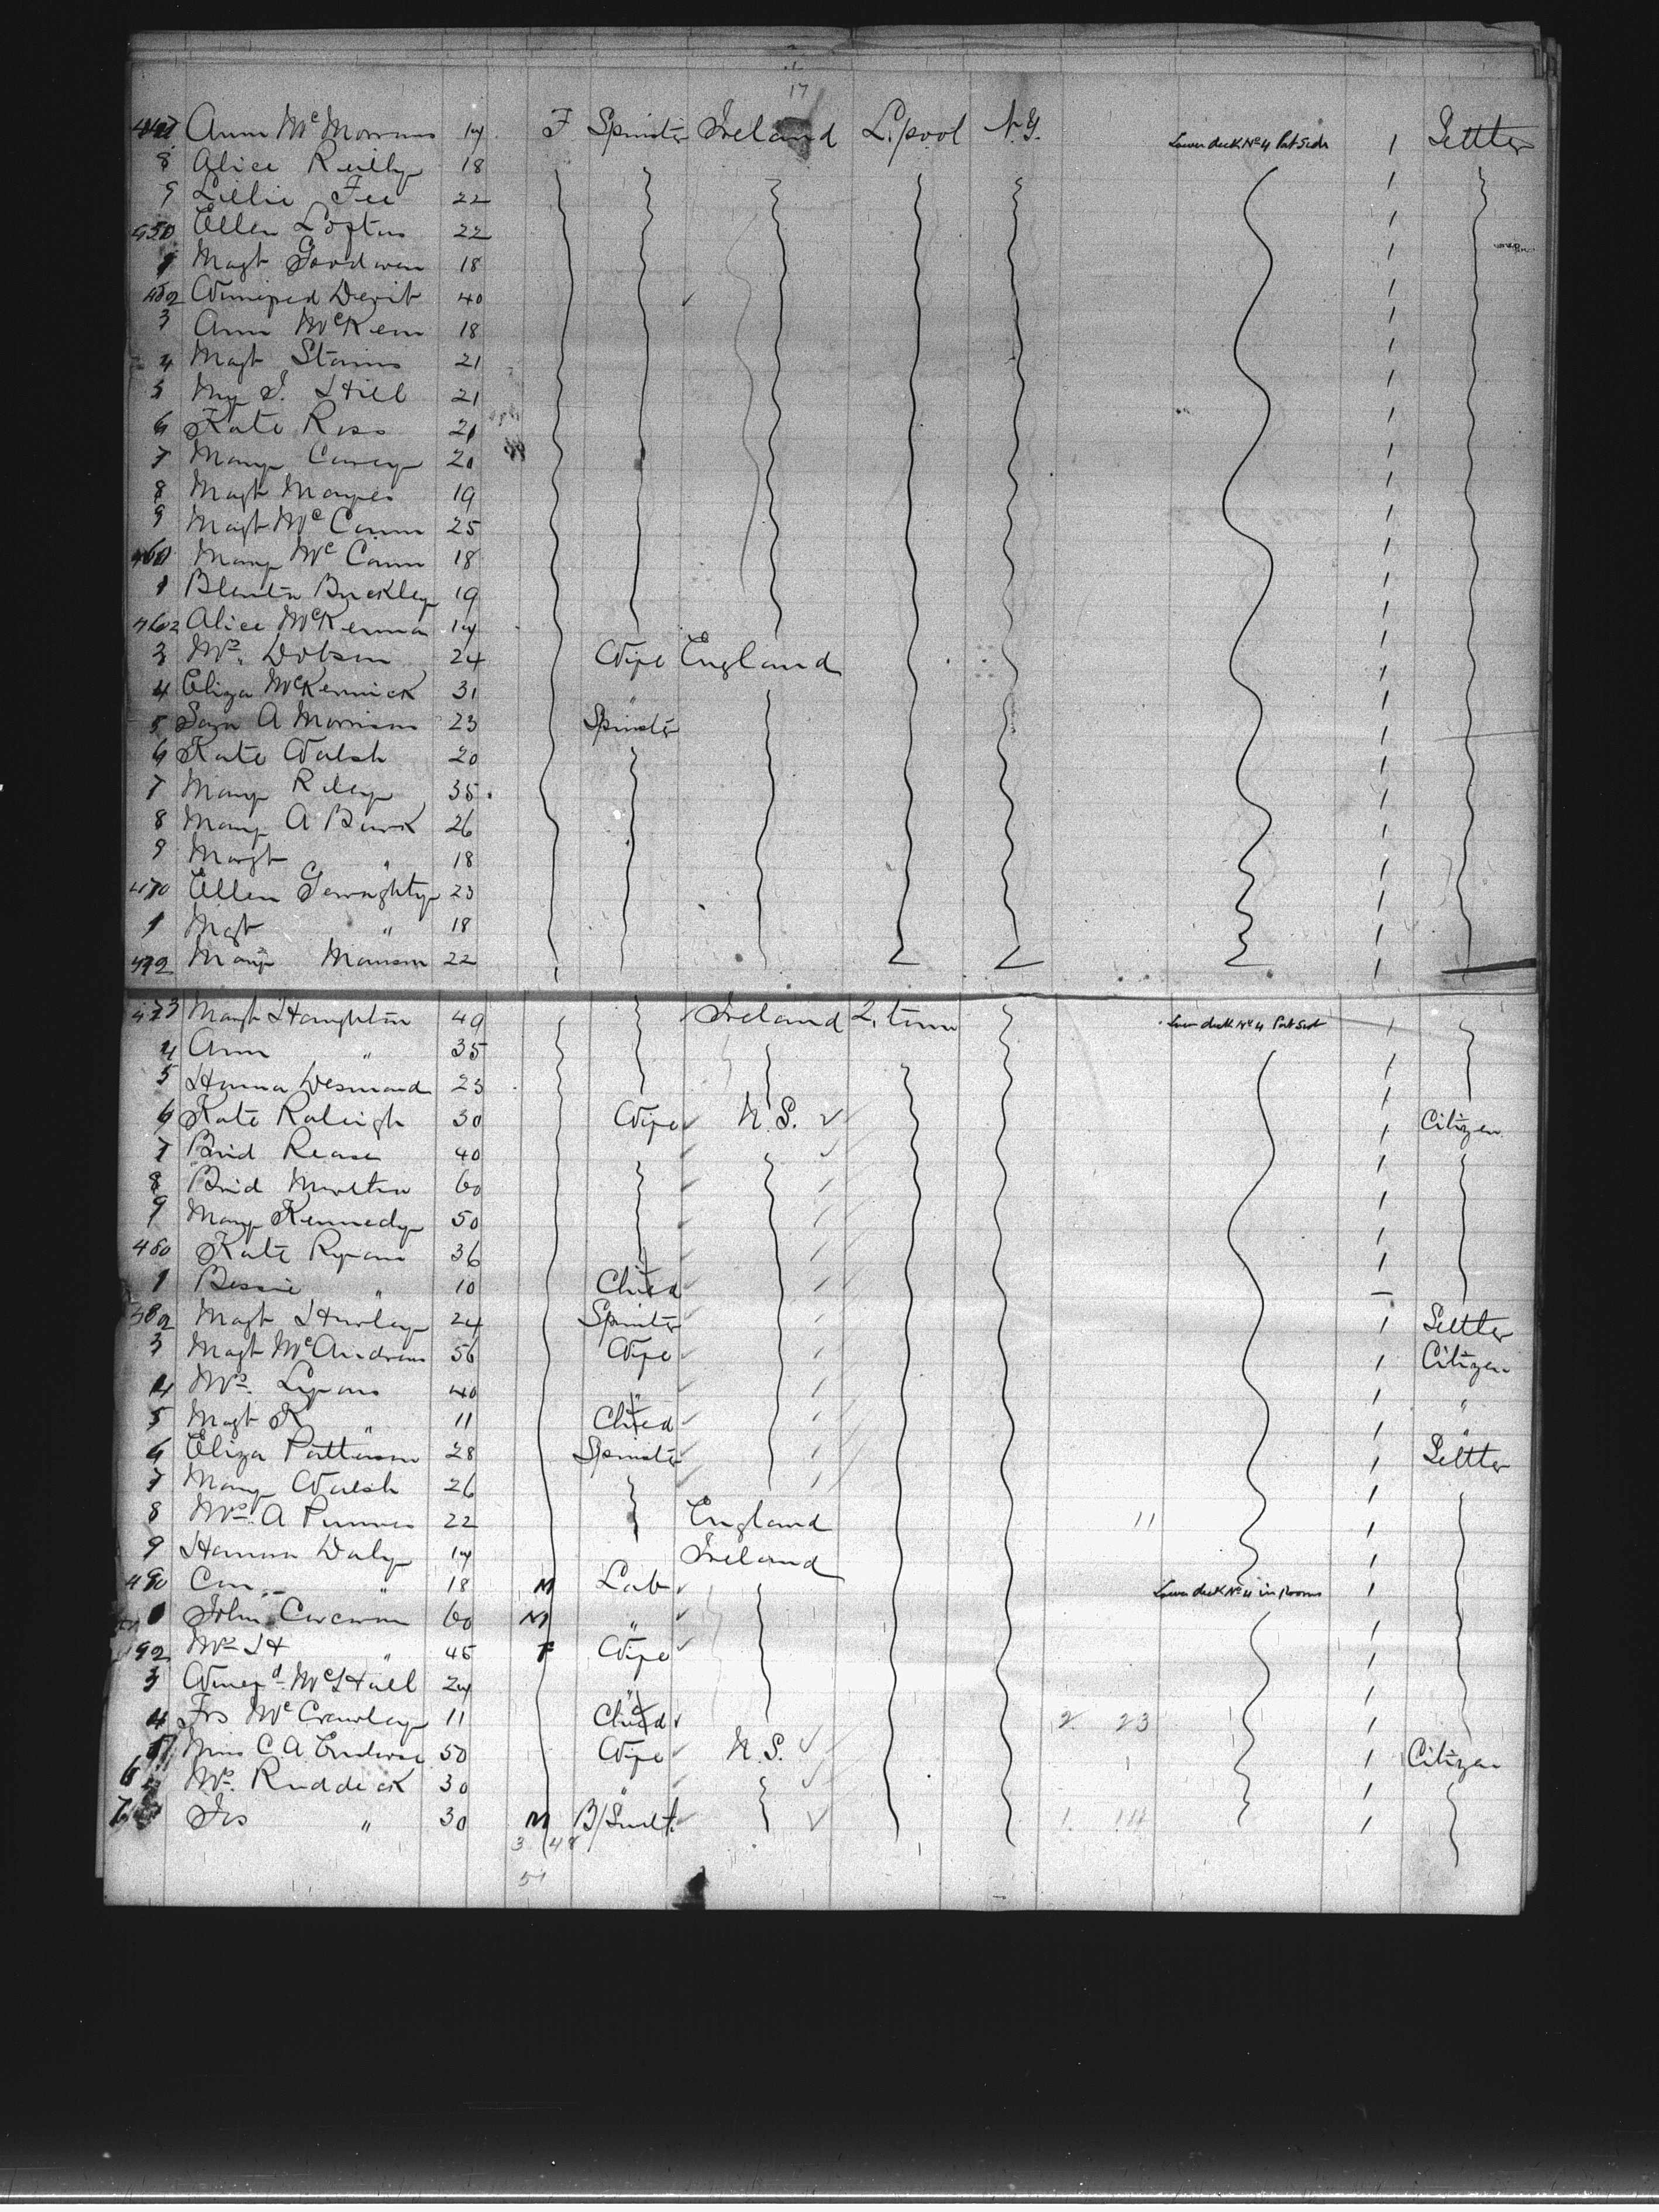 17
447 Ann McMorrow 14 F Spinster Ireland L.pool N.Y. Lower deck No 4 Port Side 1 Settler
8 Alice Reilly 18 1
9 Lillie Fee 22 1
450 Ellen Loftus 22 1
1 Magt Goodwin 18 1
452 Winnifred Devit 40 1
3 Ann McKenn 18 1
4 Magt Stains 21 1
5 My J. Hill 21 1
6 Kate Ross 21 1
7 Mary Carey 20 1
8 Magt Mayes 19 1
9 Magt McCann 25 1
460 Mary McCann 18 1
1 Buckley 19 1
462 Alice McKenna 14 1
3 Mrs. Dobson 24 Wife England 1
4 Eliza McKennick 31 " 1
5 Sara A Morrison 23 Spinster 1
6 Kate Walsh 20 1
7 Mary Riley 35 1
8 Mary A Burk 26 1
9 Margt " 18 1
470 Ellen Geraghty 23 1
1 Magt " 18 1
472 Mary Manson 22 1
473 Margt Haughton 49 Ireland Q. town Lower deck No 4 Port Side 1
4 Ann " 35 1
5 Hanna Desmond 23 1
6 Kate Raleigh 30 Wife U.S. 1 Citizen
7 Brid 40 1
8 Brid 60 1
9 Mary Kennedy 50 1
480 Kate Ryan 36 1
1 Bessie " 10 Child 1
482 Magt Hurley 24 Spinster 1 Settler
3 Magt McAndrew 56 Wife 1 Citizen
4 Mrs. Lyons 40 " 1 "
5 Magt K " 11 Child 1 "
6 Eliza Patterson 28 Spinster 1 Settler
7 Mary Walsh 26 1
8 Mrs. A 22 England 11 1
9 Hanna Daly 14 Ireland 1
490 Con " 18 M Lab Lower deck No 4 in Rooms 1
1 John 60 M " 1
492 Mrs H " 45 F Wife 1
3 Winefd McHall 24 " 1
4 Frs McCrawley 11 Child 2 23 1
5 Miss C. A. 50 Wife U.S. 1 1 Citizen
6 Mrs. Ruddick 30 " 1
7 Jas " 30 M B/Smith 1 14 1
3 48
51